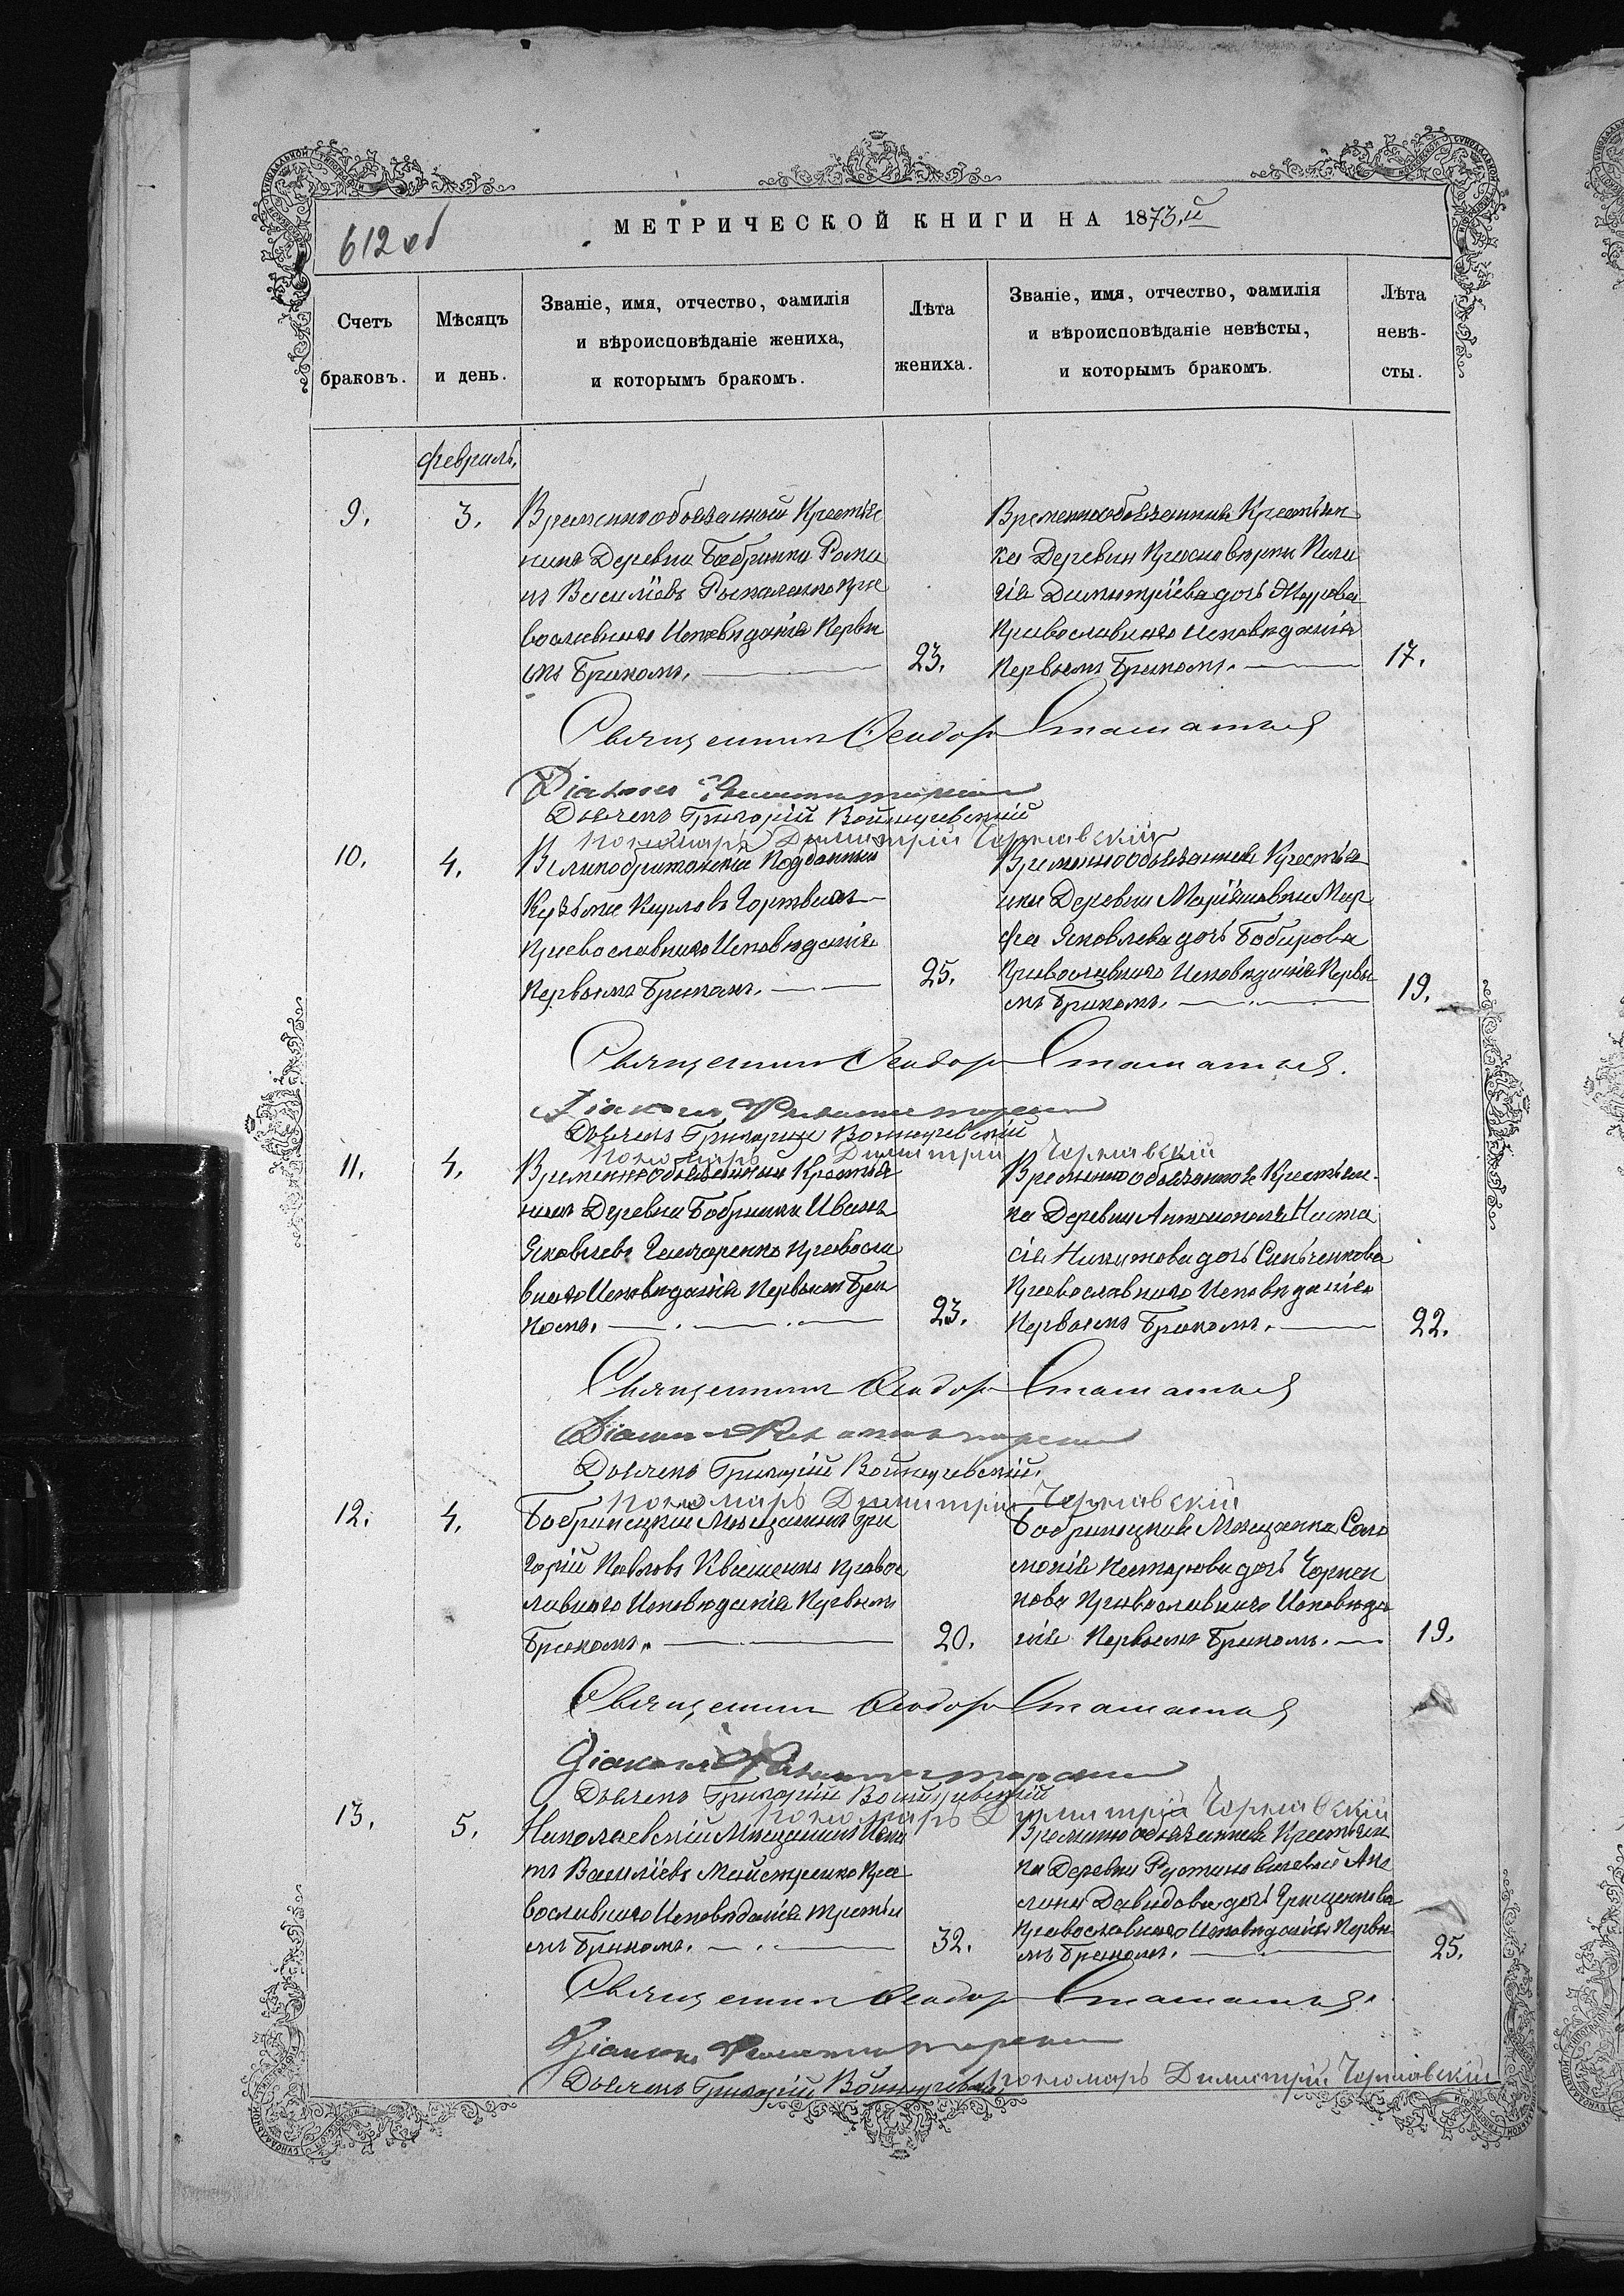 МЕТРИЧЕСКОЙ КНИГИ НА 1873.й
612 об
Счетъ браковъ.
Мѣсяцъ и день.
Званіе, имя, отчество, фамилія
и вѣроисповѣданіе жениха,
и которымъ бракомъ.
Лѣта
жениха.
Званіе, имя, отчество, фамилія
и вѣроисповѣданіе невѣсты,
и которымъ бракомъ.
Лѣта
невѣ-
сты.
Февраль.
9.
3.
Временнообязанной Крестья
нинъ Деревни Бобринки Рома
нъ Василіевъ Рыкаленко Пра
вославнаго Исповѣданія Первы
мъ Бракомъ.
23.
Временнообязанная Крестьян
ка Деревни Красновѣрки Пела
гія Димитріева дочь Журова
Православнаго Исповѣданія
Первымъ Бракомъ.
17.
Священникъ Ѳеодоръ
Діаконъ
Дьячекъ Григорій Войцеховскій
Пономарь Димитрій Чернявскій
10.
4.
Великобританскій Подданный
Карловъ Гортвигъ
Православнаго Исповѣданія
Первымъ Бракомъ.
25.
Временнообязанная Крестья
нка Деревни Маріяновки Мар
фа Яковлева дочь Бобирова
Православнаго Исповѣданія Первы
мъ Бракомъ.
19.
Священникъ Ѳеодоръ
Діаконъ
Дьячекъ Григорій Войцеховскій
Пономарь Димитрій Чернявскій
11.
4.
Временнообязанный Крестья
нинъ Деревни Бобринки Иванъ
Яковлевъ Гончаренко Правосла
внаго Исповѣданія Первымъ Бра
комъ.
23.
Временнообязанная Крестьян-
ка Деревни Антонополя Наста
сія Никитова дочь Сипченкова
Православнаго Исповѣданія
Первымъ Бракомъ.
22.
Священникъ Ѳеодоръ
Діаконъ
Дьячекъ Григорій Войцеховскій
Пономарь Димитрій Чернявскій
12.
4.
Бобринецкій Мѣщанинъ Гри
горій Павловъ Квашенко Правос
лавнаго Исповѣданія Первымъ
Бракомъ.
20.
Бобринецкая Мѣщанка Соло
монія Нестерова дочь Чернен
кова Православнаго Исповѣда
нія Первымъ Бракомъ.
19.
Священникъ Ѳеодоръ
Діаконъ
Дьячекъ Григорій Войцеховскій
Пономарь Димитрій Чернявскій
13.
5.
Николаевскій Мѣщанинъ
Василіевъ Майстренко Пра
вославнаго Исповѣданія третьи
мъ Бракомъ.
32.
Временнообязанная Крестьян
ка Деревни
Давидова дочь Грищенкова
Православнаго Исповѣданія Первы
мъ Бракомъ.
25.
Священникъ Ѳеодоръ
Діаконъ
Дьячекъ Григорій Войцеховскій Пономарь Димитрій Чернявскій